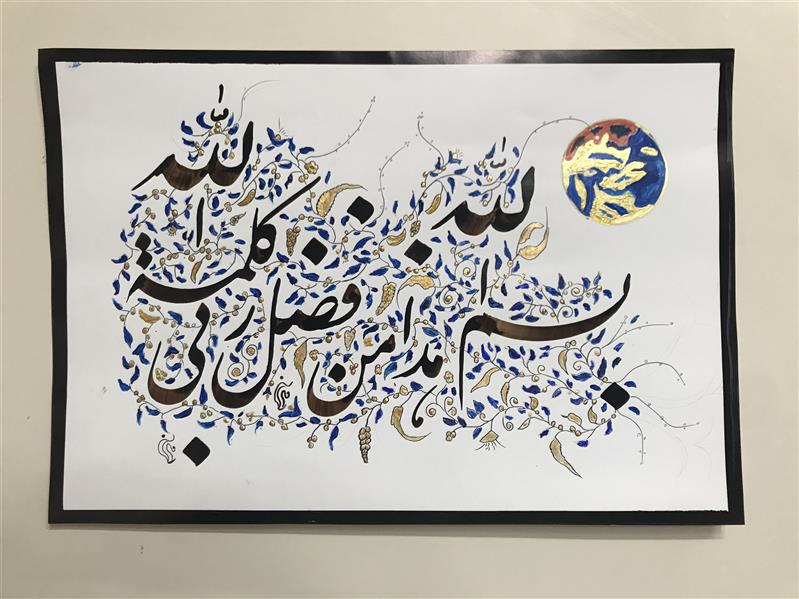 بسم الله
هذا من فضل ربي
كلمة الله